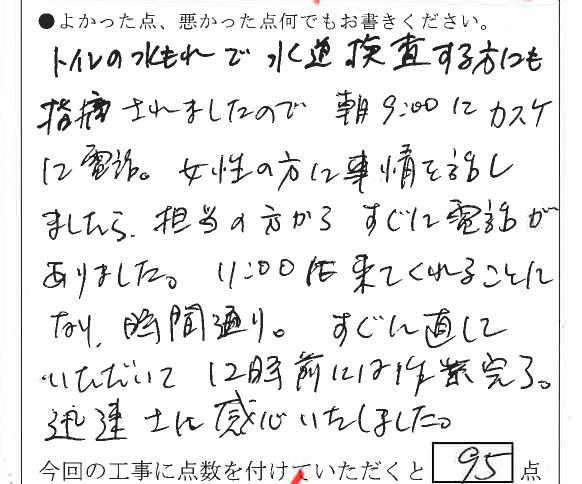 ●よかった点、悪かった点何でもお書きください。
トイレの水もれで水道検査する方にも
指摘されましたので 朝9:00にカスケ
に電話。女性の方に事情を話し
ましたら、担当の方からすぐに電話が
ありました。11:00に来てくれることに
なり、時間通り。すぐに直して
いただいて12時前には作業完了。
迅速さに感心いたしました。
今回の工事に点数を付けていただくと 95 点